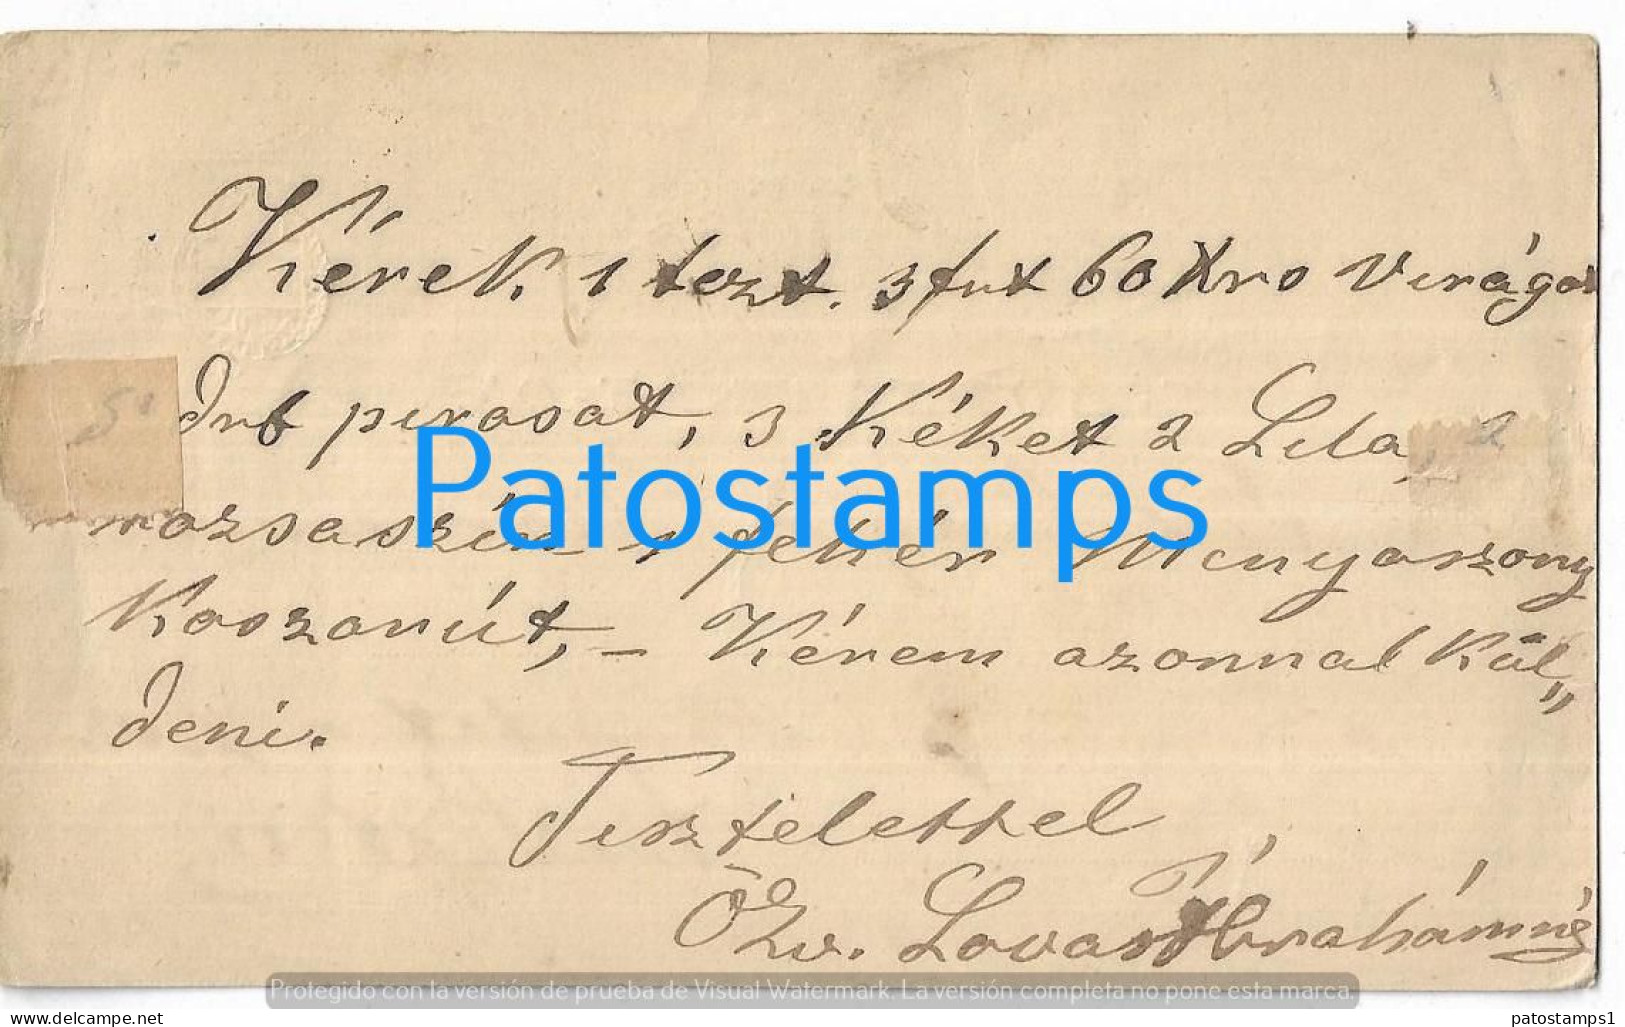 Kérek 1 tczt. 3 frt 60 Kro Virágos
drb pirosat, 3 Kéket 2 Lila, 2
rozsaszín 1 fehér Menyaszony
Koszorút, – Kérem azonnal Kül„
deni.
Tisztelettel
Özv. Lovas Ábrahámné
Patostamps
Protegido con la versión de prueba de Visual Watermark. La versión completa no pone esta marca.
www.delcampe.net
patostamps1